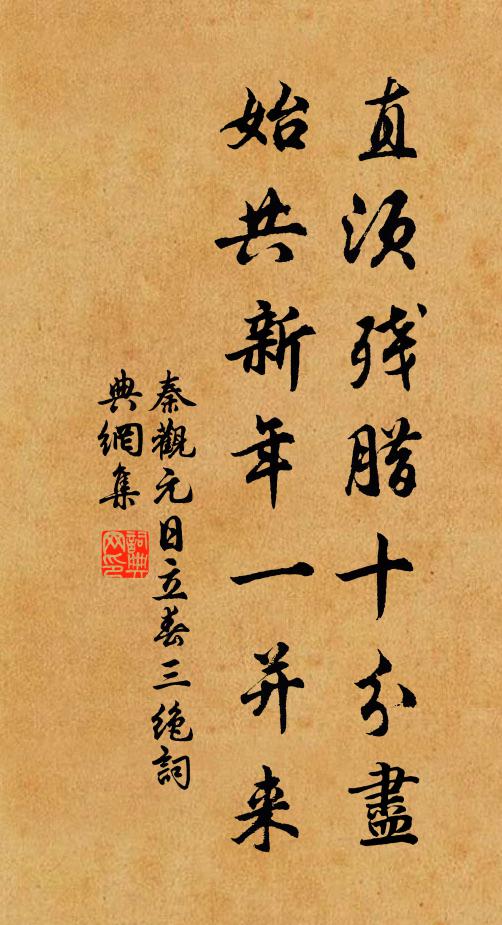 直須残腊十分盡
始共新年一并来
秦觀元日立春三絶詞
典網集
詞典
网印